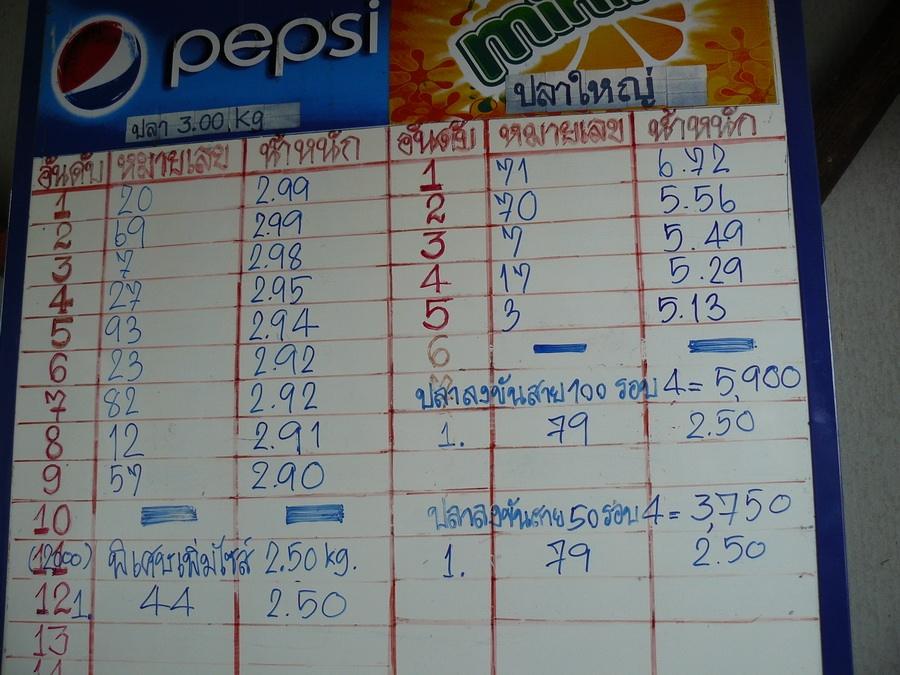 pepsi
ปลา 3.00 Kg
ปลาใหญ่
อันดับ หมายเลข น้ำหนัก
1 20 2.99
2 69 2.99
3 7 2.98
4 27 2.95
5 93 2.94
6 23 2.92
7 82 2.92
8 12 2.91
9 57 2.90
10
(12000) พิเศษเพิ่มไซส์ 2.50 kg.
12 1. 44 2.50
13
อันดับ หมายเลข น้ำหนัก
1 71 6.72
2 70 5.56
3 7 5.49
4 17 5.29
5 3 5.13
6
ปลาลงขันสาย 100 รอบ 4 = 5,900
1. 79 2.50
ปลาลงขันสาย 50 รอบ 4 = 3,750
1. 79 2.50